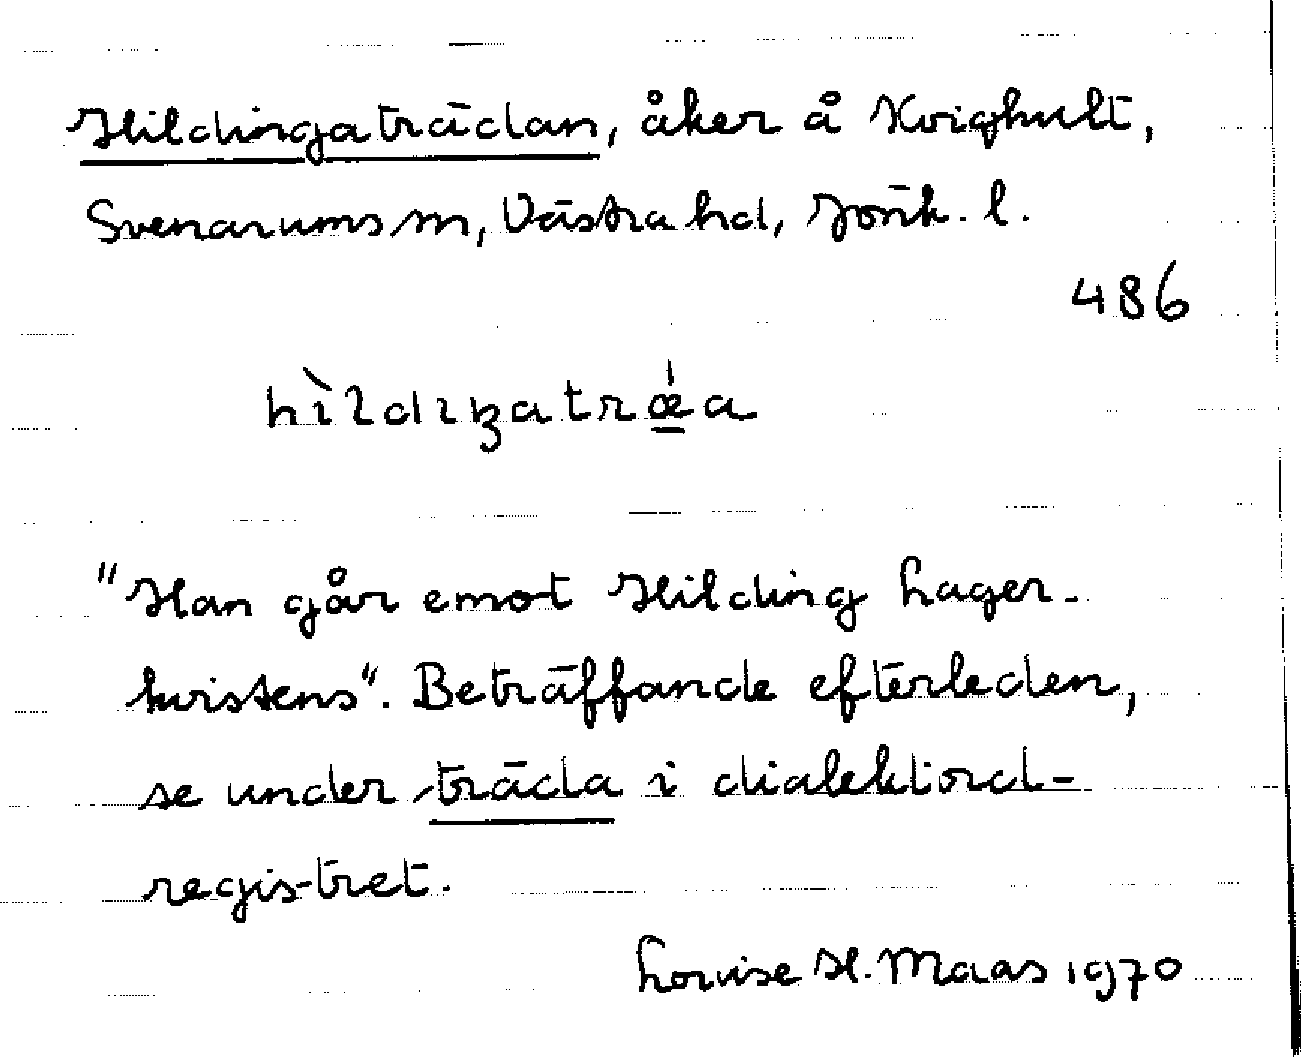 Hildingaträdan, åker å Kvighult,
Svenarums sn, Västra hd, Jönk. l.
486
hìldıŋatrǽa
"Han går emot Hilding Lager-
kvistens". Beträffande efterleden,
se under träda i dialektord-
registret.
Louise H. Maas 1970